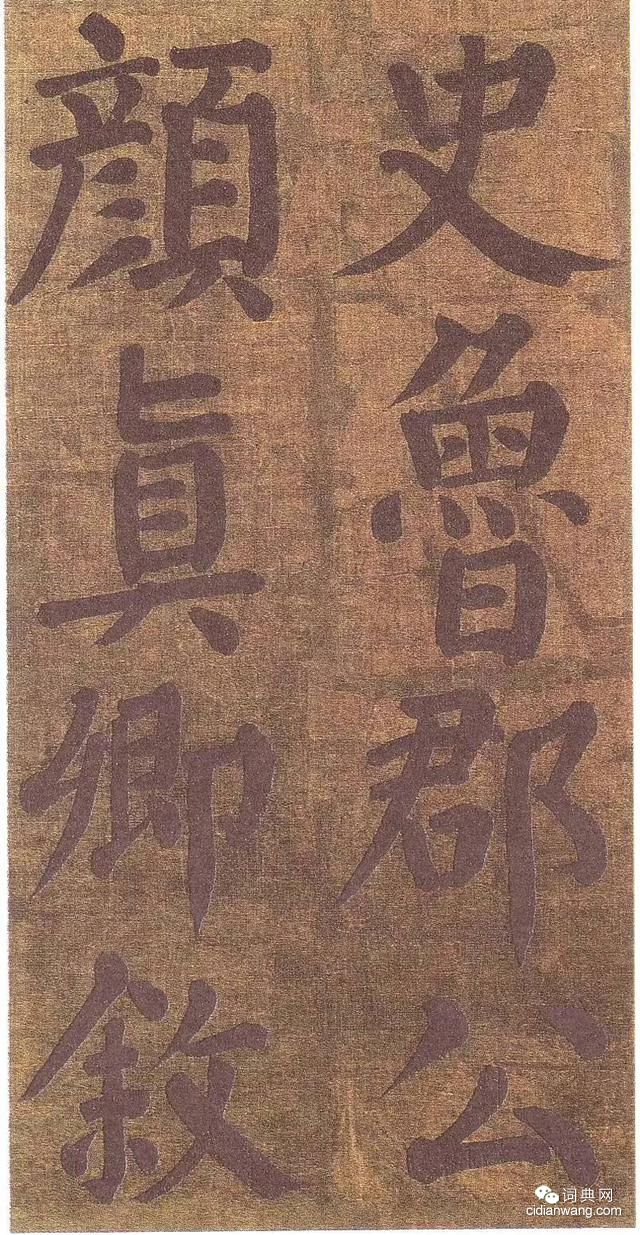 史魯郡公
顔眞卿敘
词典网
cidianwang.com